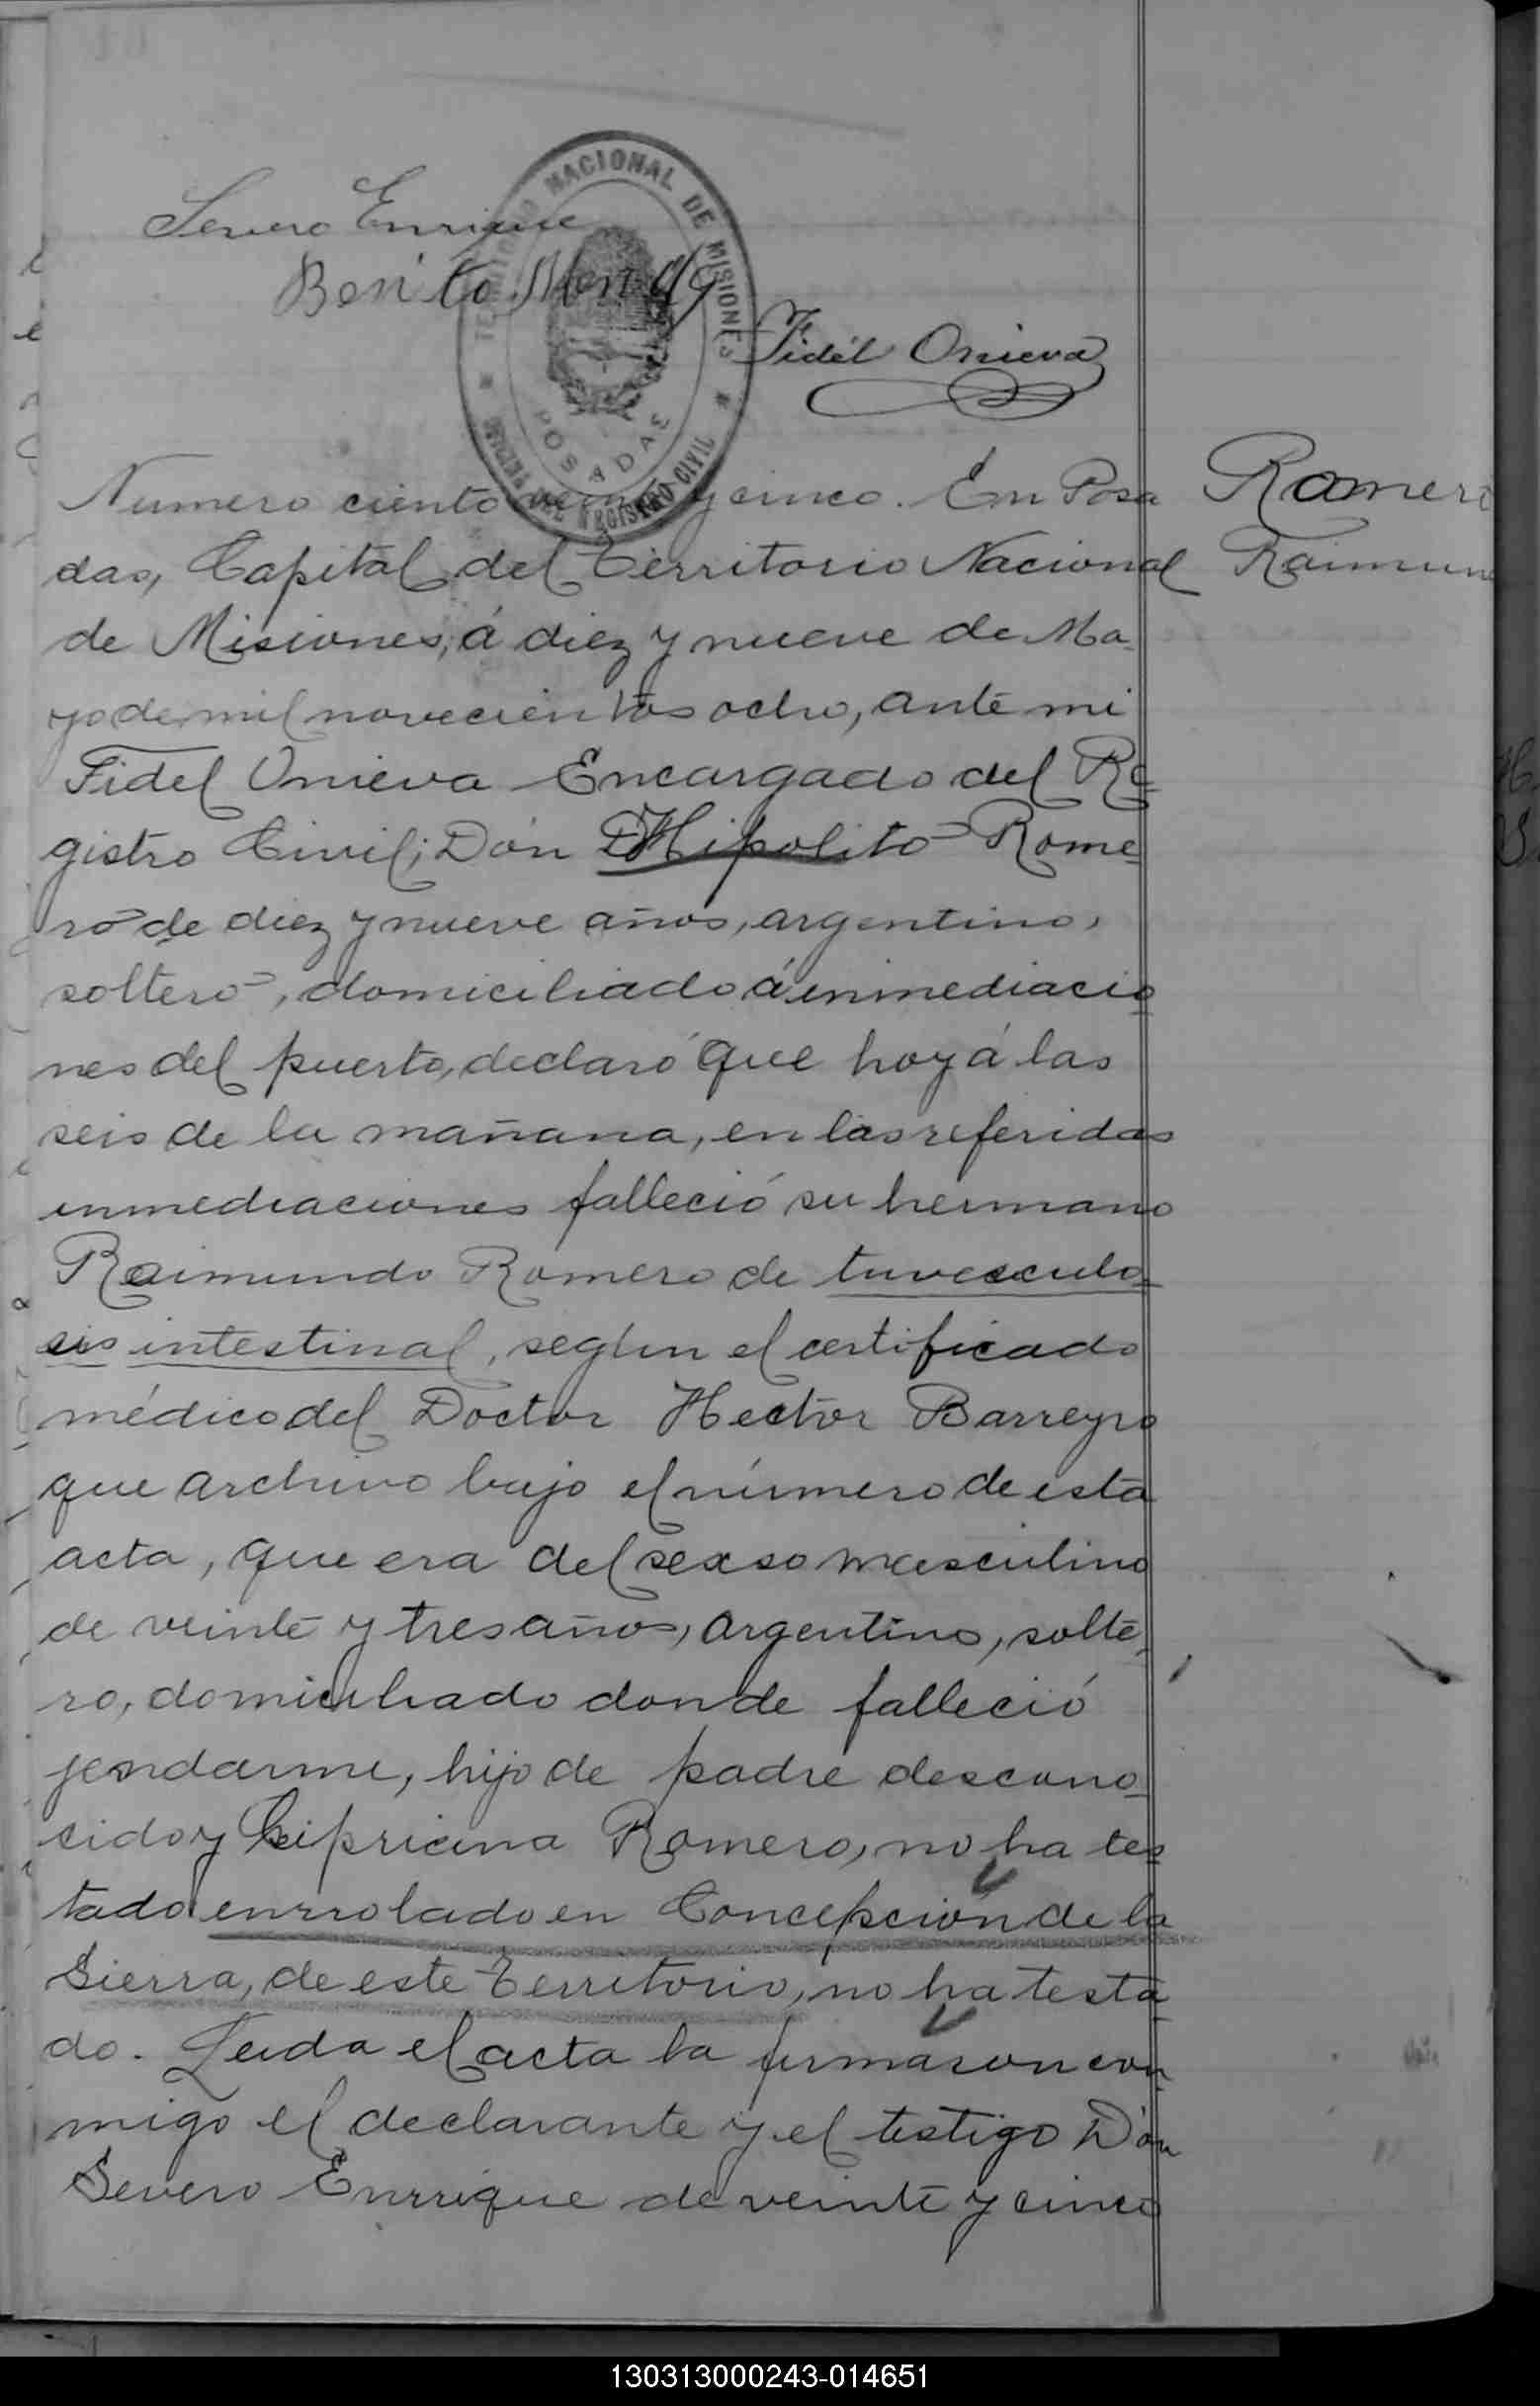 Severo Enrrique
Benito Mon
TERRITORIO NACIONAL DE MISIONES
POSADAS
DEL REGISTRO CIVIL
Fidél Onieva
Numero ciento veinte y cinco. En Posa
das, Capital del Territorio Nacional
de Misiones, á diez y nueve de Ma
yo de mil novecientos ocho, ante mi
Fidel Onieva Encargado del Re
gistro Civil; Don Hipolito Rome
ro de diez y nueve años, argentino,
soltero, domiciliado á inmediacio
nes del puerto, declaró que hoy á las
seis de la mañana, en las referidas
inmediaciones falleció su hermano
Raimundo Romero de tuvesculo
sis intestinal, segun el certificado
médico del Doctor Hector Barreyro
que archivo bajo el número de esta
acta, que era del sexso masculino
de veinte y tres años, argentino, solte
ro, domiciliado donde falleció
jendarme, hijo de padre descono
cido y Cipriana Romero, no ha tes
tado enrrolado en Concepcion de la
Sierra, de este Territorio, no ha testa
do. Leida el acta la firmaron con
migo el declarante y el testigo Don
Severo Enrrique de veinte y cinco
Romero
Raimun
130313000243-014651